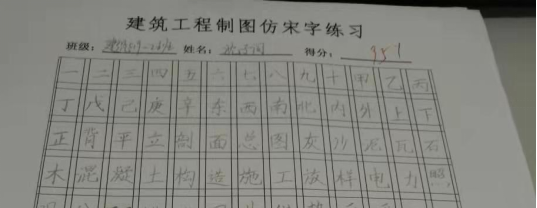 建筑工程制图仿宋字练习
班级： 姓名： 得分： 95
一二三四五六七八九十甲乙丙
丁戊己庚辛东西南北内外上下
正背平立剖面总图灰沙泥瓦石
木混凝土构造施工放样电力照